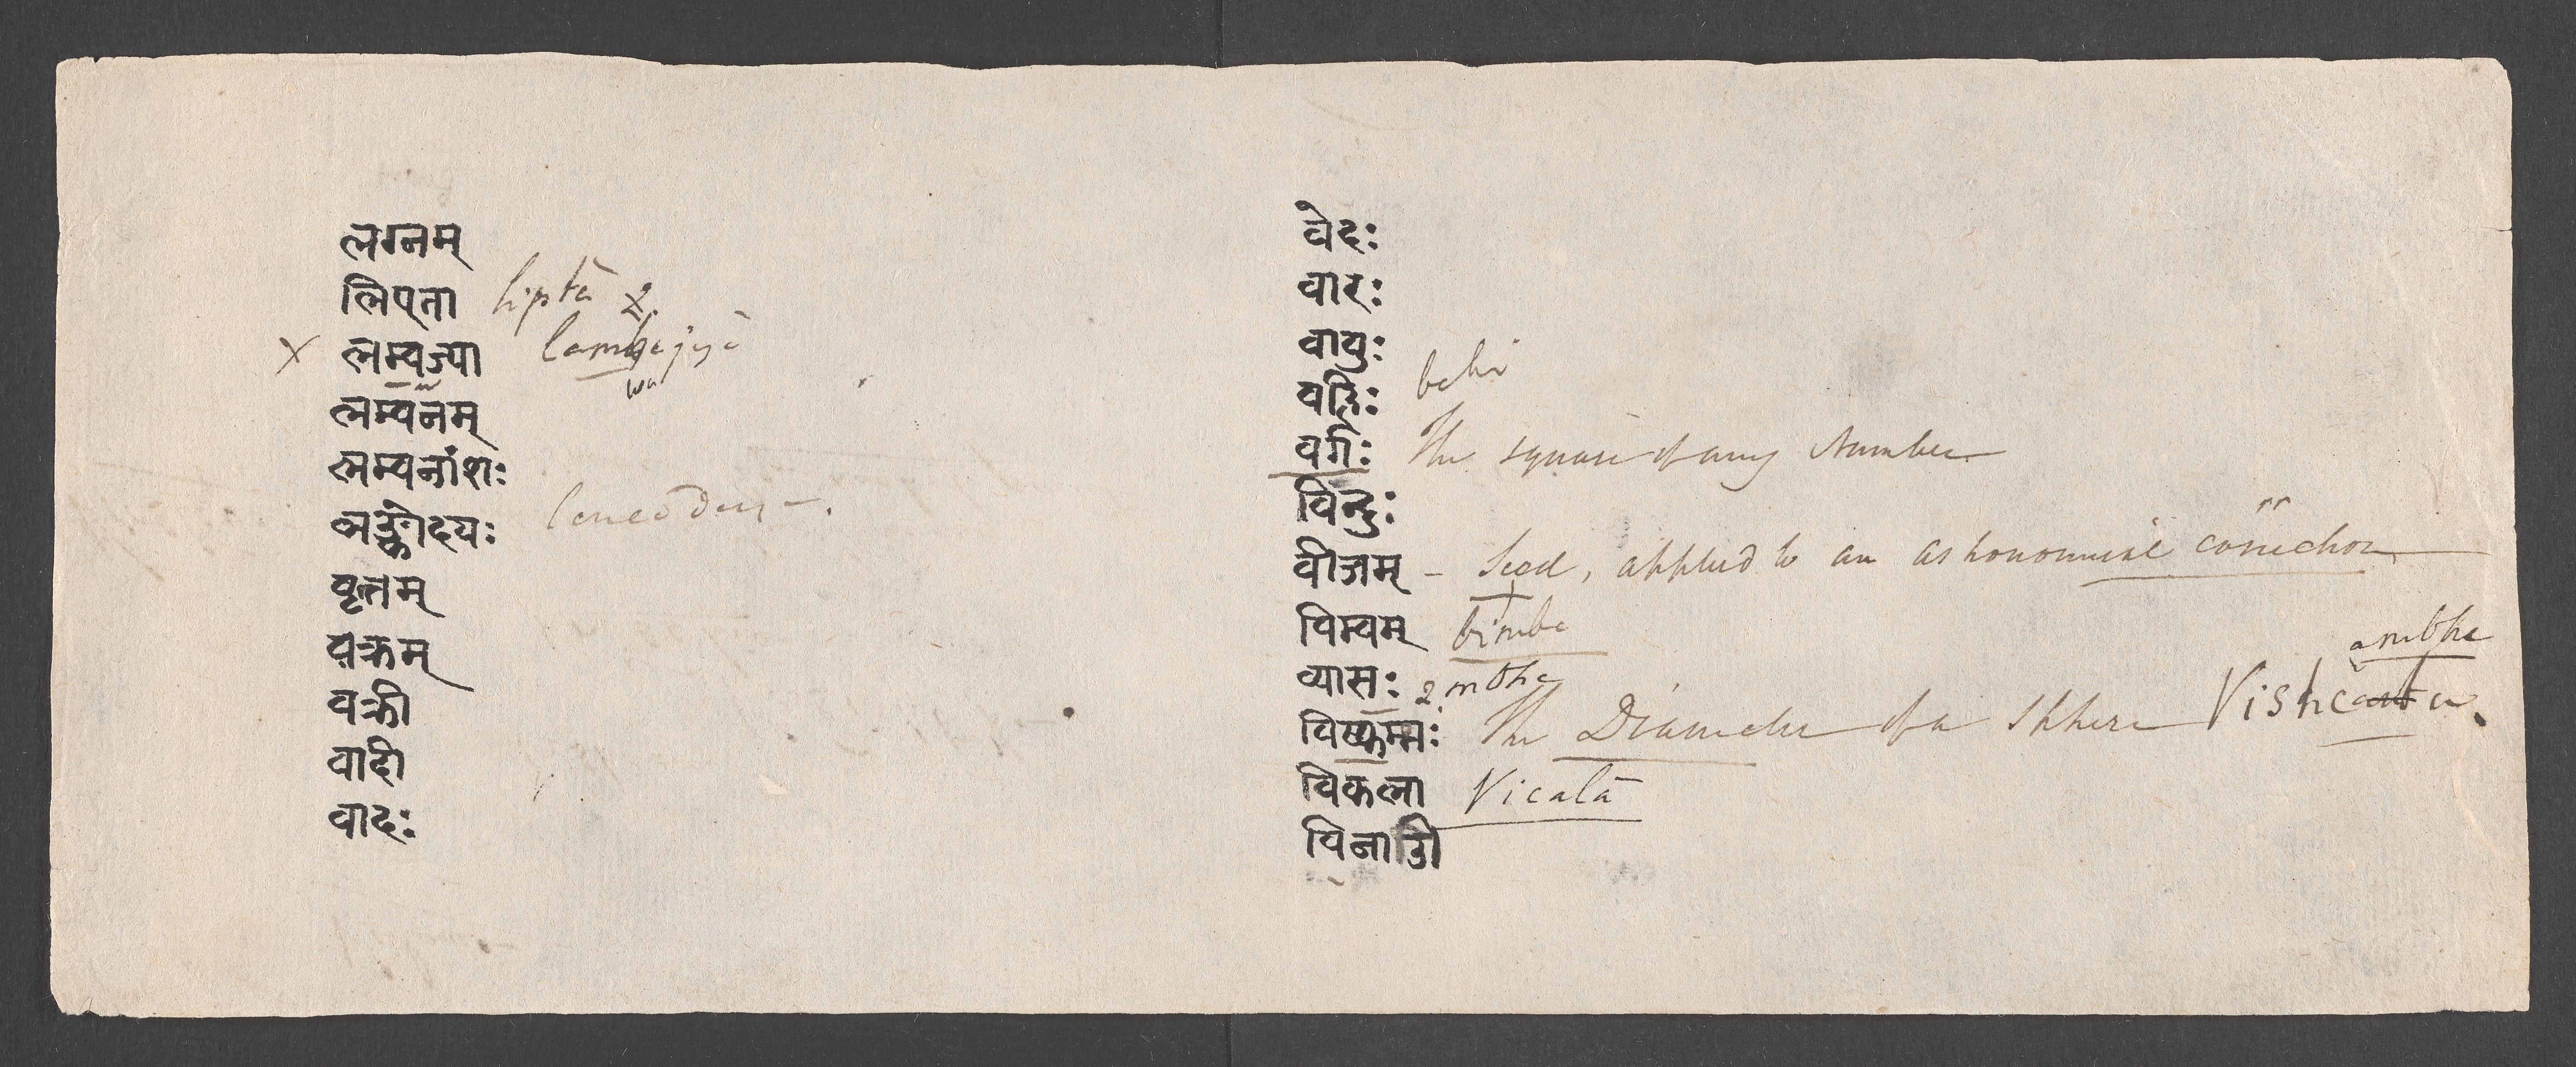 लग्नम्
लिप्ता liptā 2.
x लम्वज्या lambajyā
wa
लम्वनम्
लम्वनांशः
लङ्कोदयः
वृत्तम्
वक्रम्
वक्री
वादी
वादः
वेदः
वारः
वायुः
वह्निः bahi
वर्गः The square of any Number
विन्दुः
वीजम् - Seed, applied to an astronomical correction
विम्वम् bimba
ambha
व्यासः 2 mbha
विष्कम्भः The Diameter of a Sphere Vishcanta.
विकला Vicalā
विनाडी